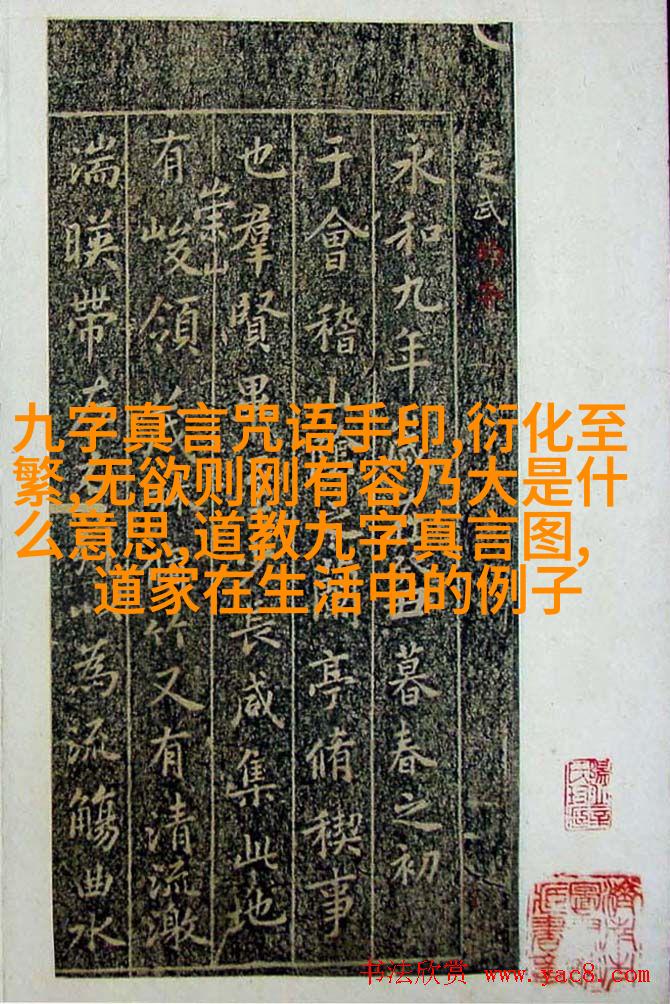 定武
永和九年暮春之初
于會稽山蘭亭脩稧事
也羣賢畢長咸集此地
有崇山峻領茂又有清流激
湍暎帶為流觴曲水
九字真言咒语手印,衍化至
繁,无欲则刚有容乃大是什
么意思,道教九字真言图,
道家在生活中的例子
书法欣赏 www.yac8.com